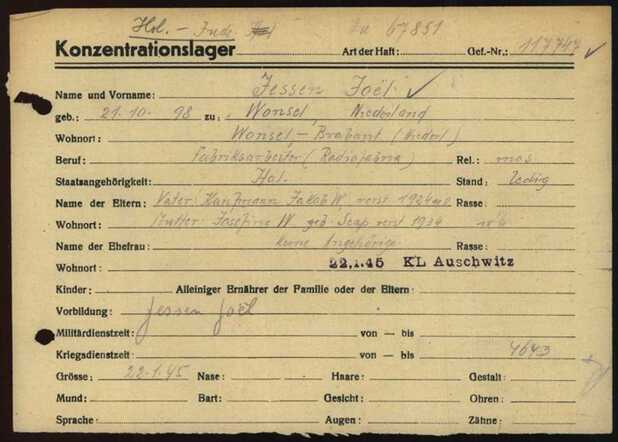 Hol. - Jude
67851
Konzentrationslager Art der Haft: Gef.-Nr.: 117747
Name und Vorname: Jessen Joël
geb.: 21.10.98 zu: Wonsel, Niederland
Wohnort: Wonsel, - Brabant (Niederl.)
Beruf: Fabriksarbeiter (Radiofabrik) Rel.: mos.
Staatsangehörigkeit: Hol. Stand: ledig
Name der Eltern: Vater: Kaufmann Jakob W verst 1924 Rasse:
Wohnort: Mutter: Josefine W geb. verst 1934
Name der Ehefrau: keine Angehörige Rasse:
Wohnort 22.1.45 KL Auschwitz
Kinder: Alleiniger Ernährer der Familie oder der Eltern:
Vorbildung: Jessen Joël
Militärdienstzeit: von — bis
Kriegsdienstzeit: von — bis 4643
Grösse: 22.1.45 Nase: Haare: Gestalt:
Mund: Bart: Gesicht: Ohren:
Sprache: Augen: Zähne: